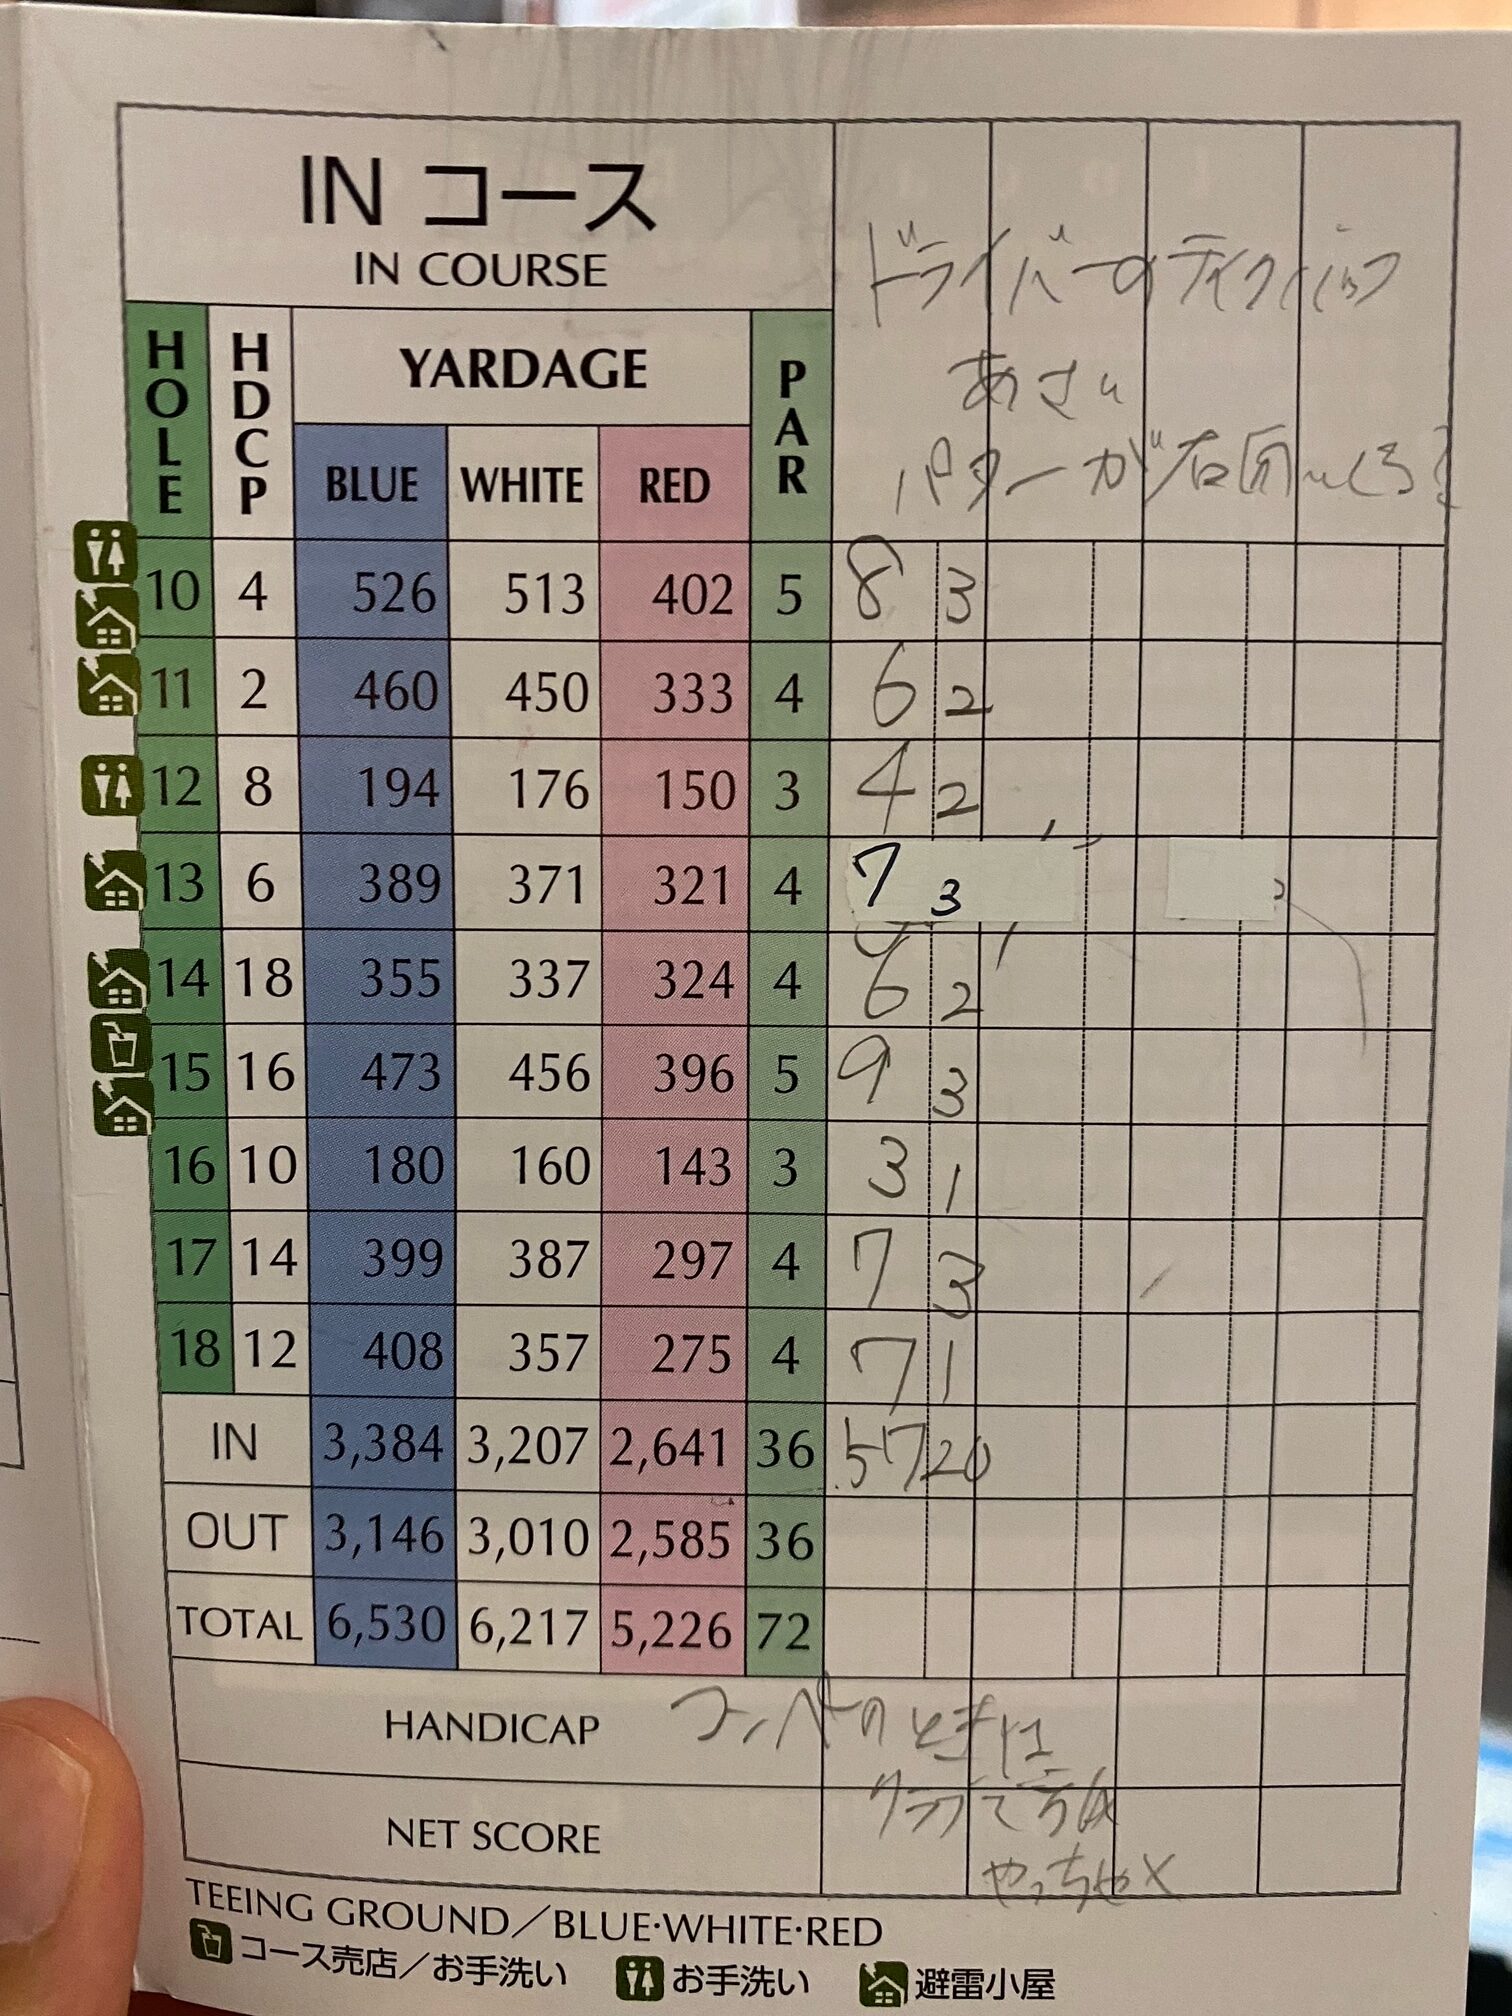 IN コース
IN COURSE
ドライバーのテイクバック
あさい
パターが右向いてる
HOLE HDCP YARDAGE PAR
BLUE WHITE RED
10 4 526 513 402 5 8 3
11 2 460 450 333 4 6 2
12 8 194 176 150 3 4 2
13 6 389 371 321 4 7 3
14 18 355 337 324 4 6 2
15 16 473 456 396 5 9 3
16 10 180 160 143 3 3 1
17 14 399 387 297 4 7 3
18 12 408 357 275 4 7 1
IN 3,384 3,207 2,641 36 57 20
OUT 3,146 3,010 2,585 36
TOTAL 6,530 6,217 5,226 72
HANDICAP のときは
NET SCORE
やっちゃ×
TEEING GROUND／BLUE·WHITE·RED
コース売店／お手洗い お手洗い 避雷小屋